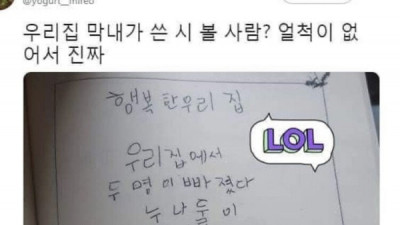 @yogurt__mireo
우리집 막내가 쓴 시 볼 사람? 얼척이 없
어서 진짜
행복한우리 집
LOL
우리집에서
두 명이 빠졌다
누나둘이